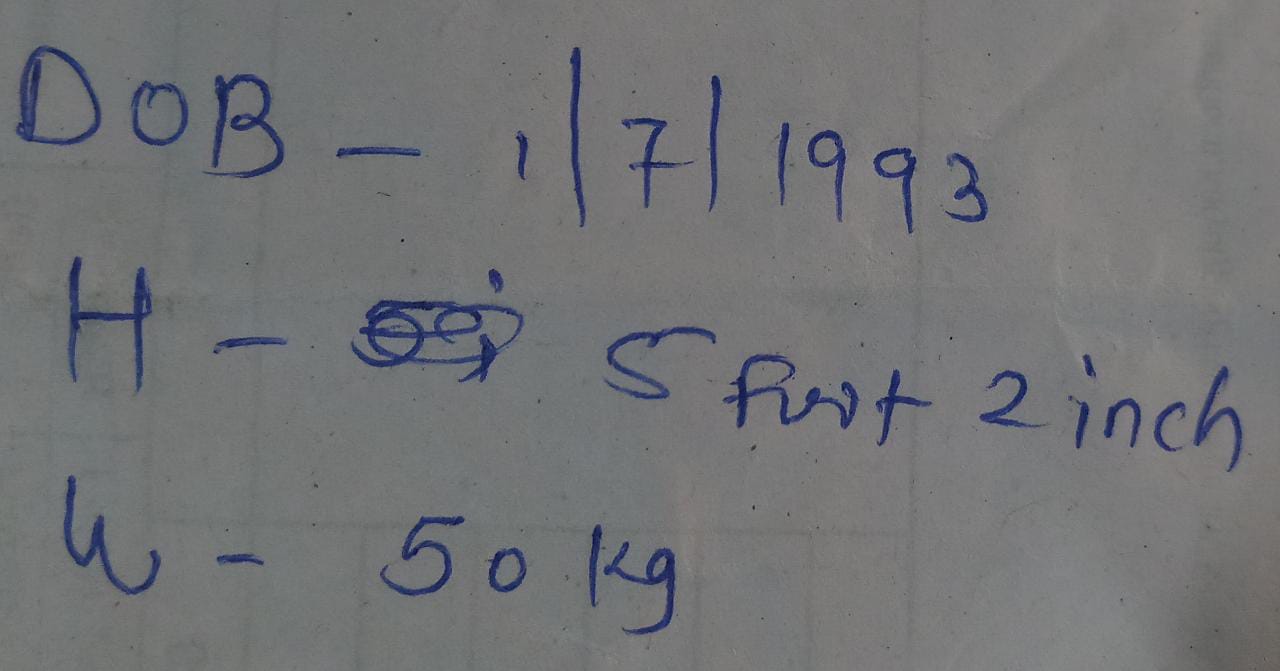 DOB - 1/7/1993
H - 5 foot 2 inch
W - 50 kg